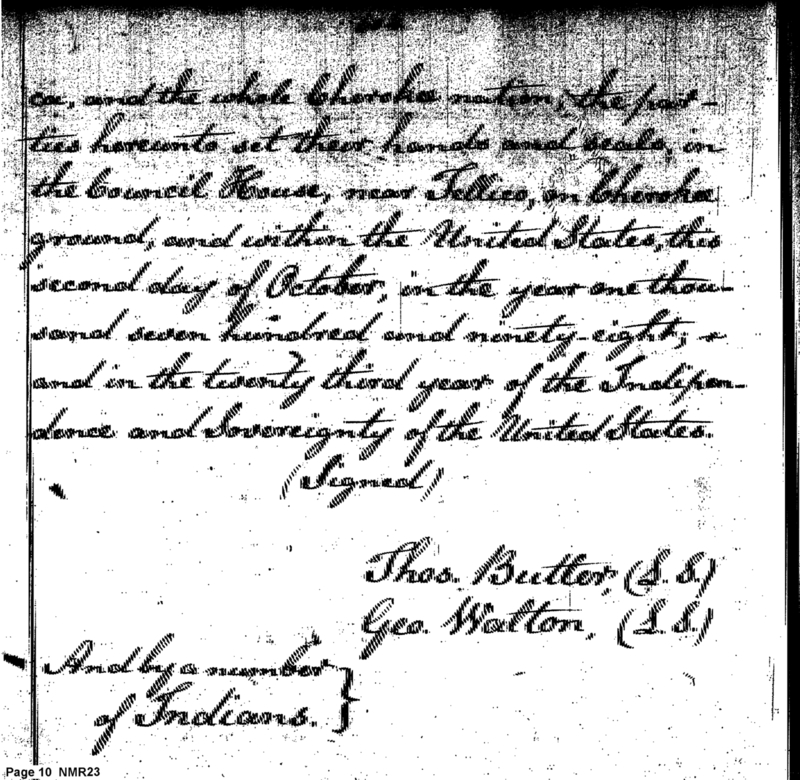 ca, and the whole Cherokee nation, the par-
ties hereunto set their hands and seals, in
the Council House, near Tellico, on Cherokee
ground, and within the United States, this
second day of October, in the year one thou-
sand seven hundred and ninety-eight; &
and in the twenty third year of the Indipen-
dence and Sovereignty of the United States.
(Signed)
Thos. Butler, (L.S.)
Geo. Walton, (L.S.)
And by a number
of Indians. }
Page 10 NMR23